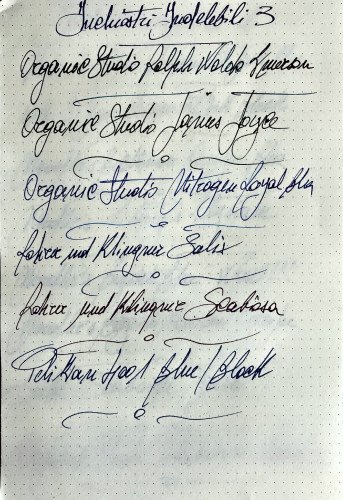 Inchiostri Indelebili 3
Organic Studio Ralph Waldo Emerson
Organic Studio James Joyce
Organic Studio Nitrogen Royal Blue
Rohrer und Klingner Salix
Rohrer und Klingner Scabiosa
Pelikan 4001 Blue/Black